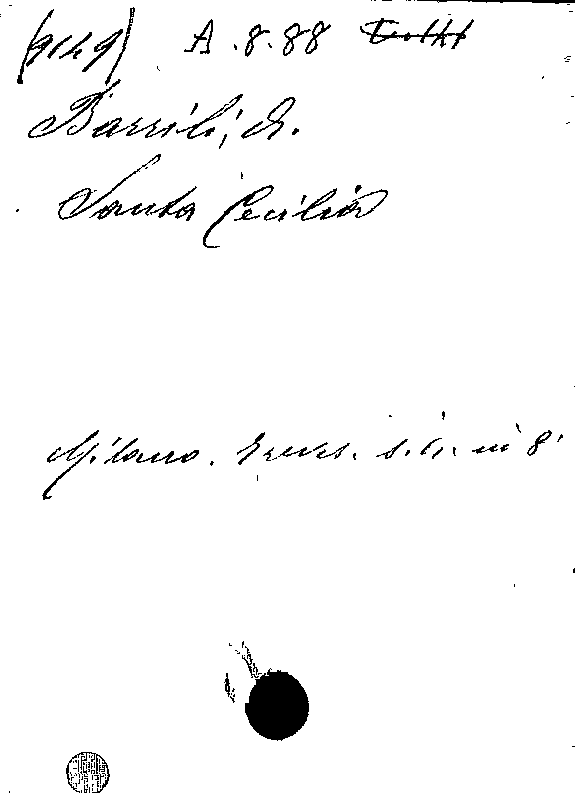 (9149) A.8.88
Barrili, A.
Santa Cecilia
Milano. Treves. s.a. in 8°